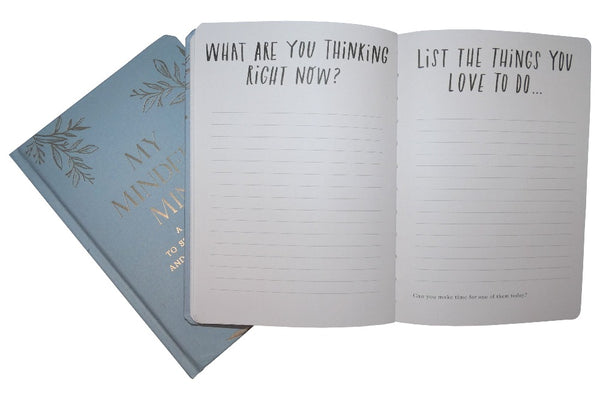 MY
A
TO
AND
WHAT ARE YOU THINKING
RIGHT NOW?
LIST THE THINGS YOU
LOVE TO DO...
Can you make time for one of them today?